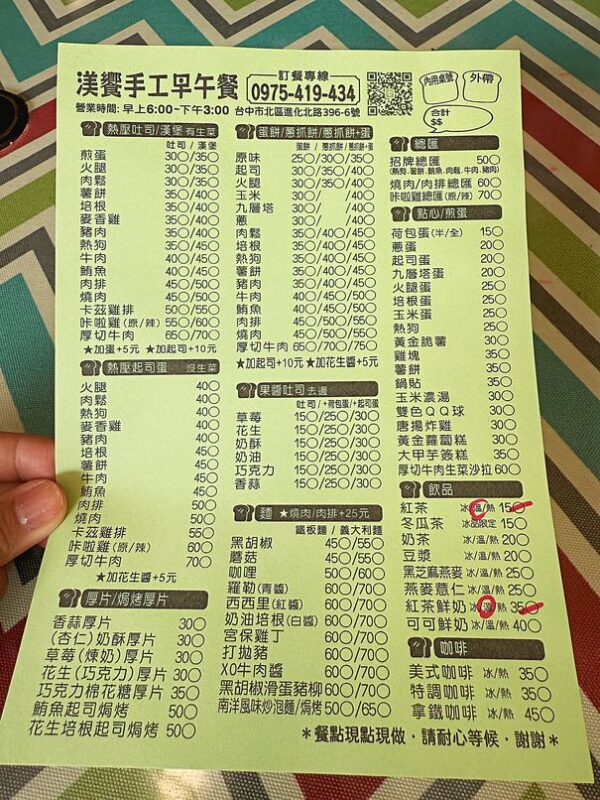 渼饗手工早午餐
訂餐專線
0975-419-434
內用桌號
外帶
合計
$$
營業時間: 早上6:00~下午3:00 台中市北區進化北路396-6號
熱壓吐司/漢堡 有生菜
吐司 / 漢堡
煎蛋 30○/35○
火腿 30○/35○
肉鬆 30○/35○
薯餅 30○/35○
培根 35○/40○
麥香雞 35○/40○
豬肉 35○/40○
熱狗 35○/45○
牛肉 40○/45○
鮪魚 40○/45○
肉排 45○/50○
燒肉 45○/50○
卡茲雞排 50○/55○
咔啦雞(原/辣) 55○/60○
厚切牛肉 65○/70○
★加蛋+5元 ★加起司+10元
熱壓起司蛋 沒生菜
火腿 40○
肉鬆 40○
熱狗 40○
麥香雞 40○
豬肉 40○
培根 45○
薯餅 45○
牛肉 45○
鮪魚 45○
肉排 50○
燒肉 50○
卡茲雞排 55○
咔啦雞(原/辣) 60○
厚切牛肉 70○
★加花生醬+5元
厚片/焗烤厚片
香蒜厚片 30○
(杏仁)奶酥厚片 30○
草莓(煉奶)厚片 30○
花生(巧克力)厚片 30○
巧克力棉花糖厚片 35○
鮪魚起司焗烤 50○
花生培根起司焗烤 50○
蛋餅/蔥抓餅/蔥抓餅+蛋
蛋餅 / 蔥抓餅 / 蔥抓餅+蛋
原味 25○/30○/35○
起司 30○/35○/40○
火腿 30○/35○/40○
玉米 30○/ /40○
九層塔 30○/ /40○
蔥 30○/ /40○
肉鬆 35○/40○/45○
培根 35○/40○/45○
熱狗 35○/40○/45○
薯餅 35○/40○/45○
豬肉 35○/40○/45○
牛肉 40○/45○/50○
鮪魚 40○/45○/50○
肉排 45○/50○/55○
燒肉 45○/50○/55○
厚切牛肉 65○/70○/75○
★加起司+10元 ★加花生醬+5元
果醬吐司 去邊
吐司 / +荷包蛋/+起司蛋
草莓 15○/25○/30○
花生 15○/25○/30○
奶酥 15○/25○/30○
奶油 15○/25○/30○
巧克力 15○/25○/30○
香蒜 15○/25○/30○
麵 ★燒肉/肉排+25元
鐵板麵 / 義大利麵
黑胡椒 45○/55○
蘑菇 45○/55○
咖哩 50○/60○
羅勒(青醬) 60○/70○
西西里(紅醬) 60○/70○
奶油培根(白醬) 60○/70○
宮保雞丁 60○/70○
打拋豬 60○/70○
XO牛肉醬 60○/70○
黑胡椒滑蛋豬柳 60○/70○
南洋風味炒泡麵/焗烤 50○/65○
總匯
招牌總匯 50○
(熱狗.薯餅.鮪魚.肉鬆.牛肉.豬肉)
燒肉/肉排總匯 60○
咔啦雞總匯(原/辣) 70○
點心/煎蛋
荷包蛋(半/全) 15○
蔥蛋 20○
起司蛋 20○
九層塔蛋 20○
火腿蛋 25○
培根蛋 25○
玉米蛋 25○
熱狗 25○
黃金脆薯 30○
雞塊 35○
薯餅 35○
鍋貼 35○
玉米濃湯 30○
雙色QQ球 30○
唐揚炸雞 30○
黃金蘿蔔糕 30○
大甲芋簽糕 35○
厚切牛肉生菜沙拉 60○
飲品
紅茶 冰/溫/熱 15○
冬瓜茶 冰品限定 15○
奶茶 冰/溫/熱 20○
豆漿 冰/溫/熱 20○
黑芝麻燕麥 冰/溫/熱 25○
燕麥薏仁 冰/溫/熱 25○
紅茶鮮奶 冰/溫/熱 35○
可可鮮奶 冰/溫/熱 40○
咖啡
美式咖啡 冰/熱 35○
特調咖啡 冰/熱 35○
拿鐵咖啡 冰/熱 45○
＊餐點現點現做，請耐心等候，謝謝＊